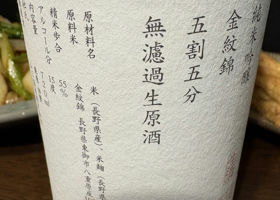 純米吟醸
金紋錦
五割五分
無濾過生原酒
原材料名 米(長野県産)、米麹(長野県産
原料米 金紋錦 長野県東御市八重原産
精米歩合 55%
アルコール分 15度
内容量 720ml